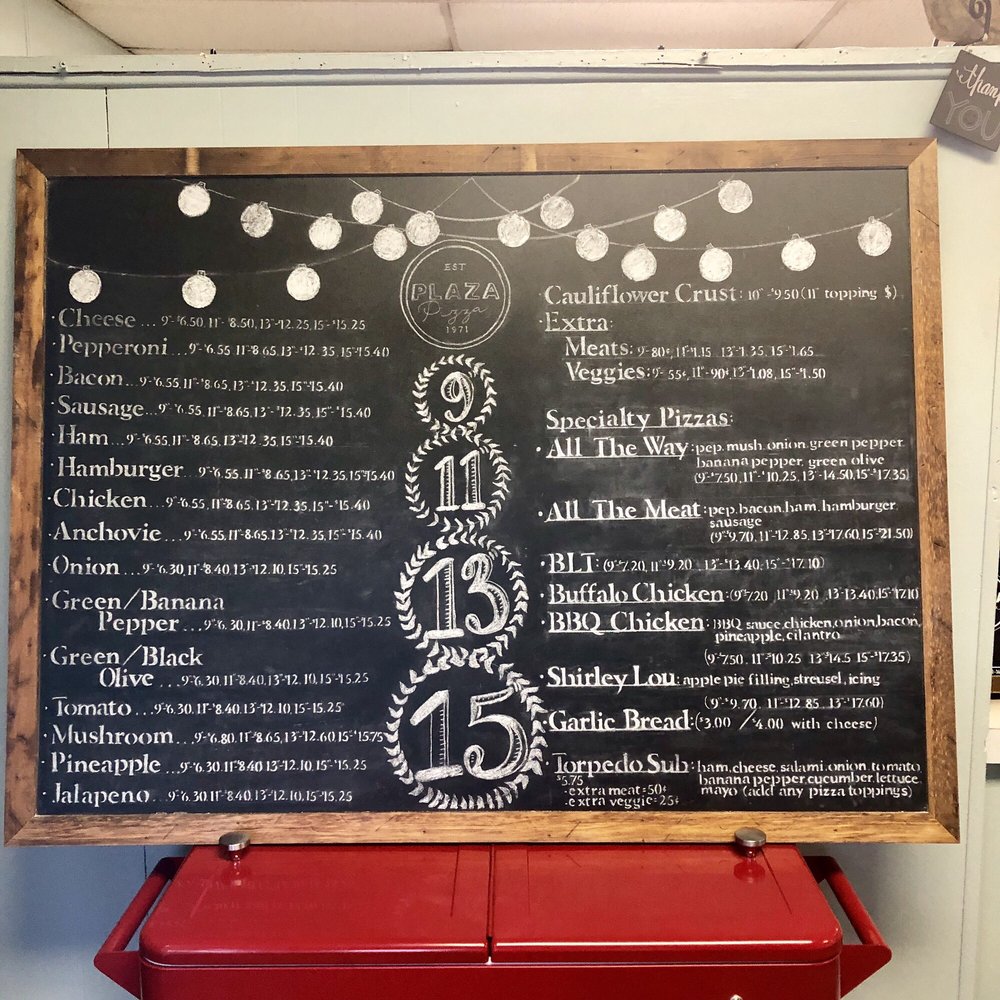 thank
YOU
EST
PLAZA
Pizza
1971
·Cheese... 9"-$6.50, 11"-$8.50, 13"-$12.25, 15"-$15.25
·Pepperoni...9"-$6.55, 11"-$8.65, 13"-$12.35, 15"-$15.40
·Bacon...9"-$6.55, 11"-$8.65, 13"-$12.35, 15"-$15.40
·Sausage...9"-$6.55, 11"-$8.65, 13"-$12.35, 15"-$15.40
·Ham...9"-$6.55, 11"-$8.65, 13"-$12.35, 15"-$15.40
·Hamburger...9"-$6.55, 11"-$8.65, 13"-$12.35, 15"-$15.40
·Chicken...9"-$6.55, 11"-$8.65, 13"-$12.35, 15"-$15.40
·Anchovie...9"-$6.55, 11"-$8.65, 13"-$12.35, 15"-$15.40
·Onion...9"-$6.30, 11"-$8.40, 13"-$12.10, 15"-$15.25
·Green/Banana
Pepper...9"-$6.30, 11"-$8.40, 13"-$12.10, 15"-$15.25
·Green/Black
Olive...9"-$6.30, 11"-$8.40, 13"-$12.10, 15"-$15.25
·Tomato...9"-$6.30, 11"-$8.40, 13"-$12.10, 15"-$15.25
·Mushroom...9"-$6.80, 11"-$8.65, 13"-$12.60, 15"-$15.75
·Pineapple...9"-$6.30, 11"-$8.40, 13"-$12.10, 15"-$15.25
·Jalapeno...9"-$6.30, 11"-$8.40, 13"-$12.10, 15"-$15.25
9
11
13
15
·Cauliflower Crust: 10"-$9.50 (11" topping $)
·Extra:
Meats: 9"-80¢, 11"-$1.15, 13"-$1.35, 15"-$1.65
Veggies: 9"-55¢, 11"-90¢, 13"-$1.08, 15"-$1.50
Specialty Pizzas:
·All The Way: pep. mush. onion. green pepper.
banana pepper. green olive
(9"-$7.50, 11"-$10.25, 13"-$14.50, 15"-$17.35)
·All The Meat: pep, bacon, ham, hamburger,
sausage
(9"-$9.70, 11"-$12.85, 13"-$17.60, 15"-$21.50)
·BLT: (9"-$7.20, 11"-$9.20, 13"-$13.40, 15"-$17.10)
·Buffalo Chicken: (9"-$7.20 11"-$9.20 13"-$13.40, 15"-$17.10
·BBQ Chicken: BBQ sauce, chicken, onion, bacon,
pineapple, cilantro
(9"-$7.50, 11"-$10.25 13"-$14.5 15"-$17.35)
·Shirley Lou: apple pie filling, streusel, icing
(9"-$9.70, 11"-$12.85, 13"-$17.60)
·Garlic Bread: ($3.00 / $4.00 with cheese)
·Torpedo Sub: ham, cheese, salami, onion, tomato,
$5.75 banana pepper, cucumber, lettuce,
-extra meat=50¢ mayo (add any pizza toppings)
-extra veggie=25¢